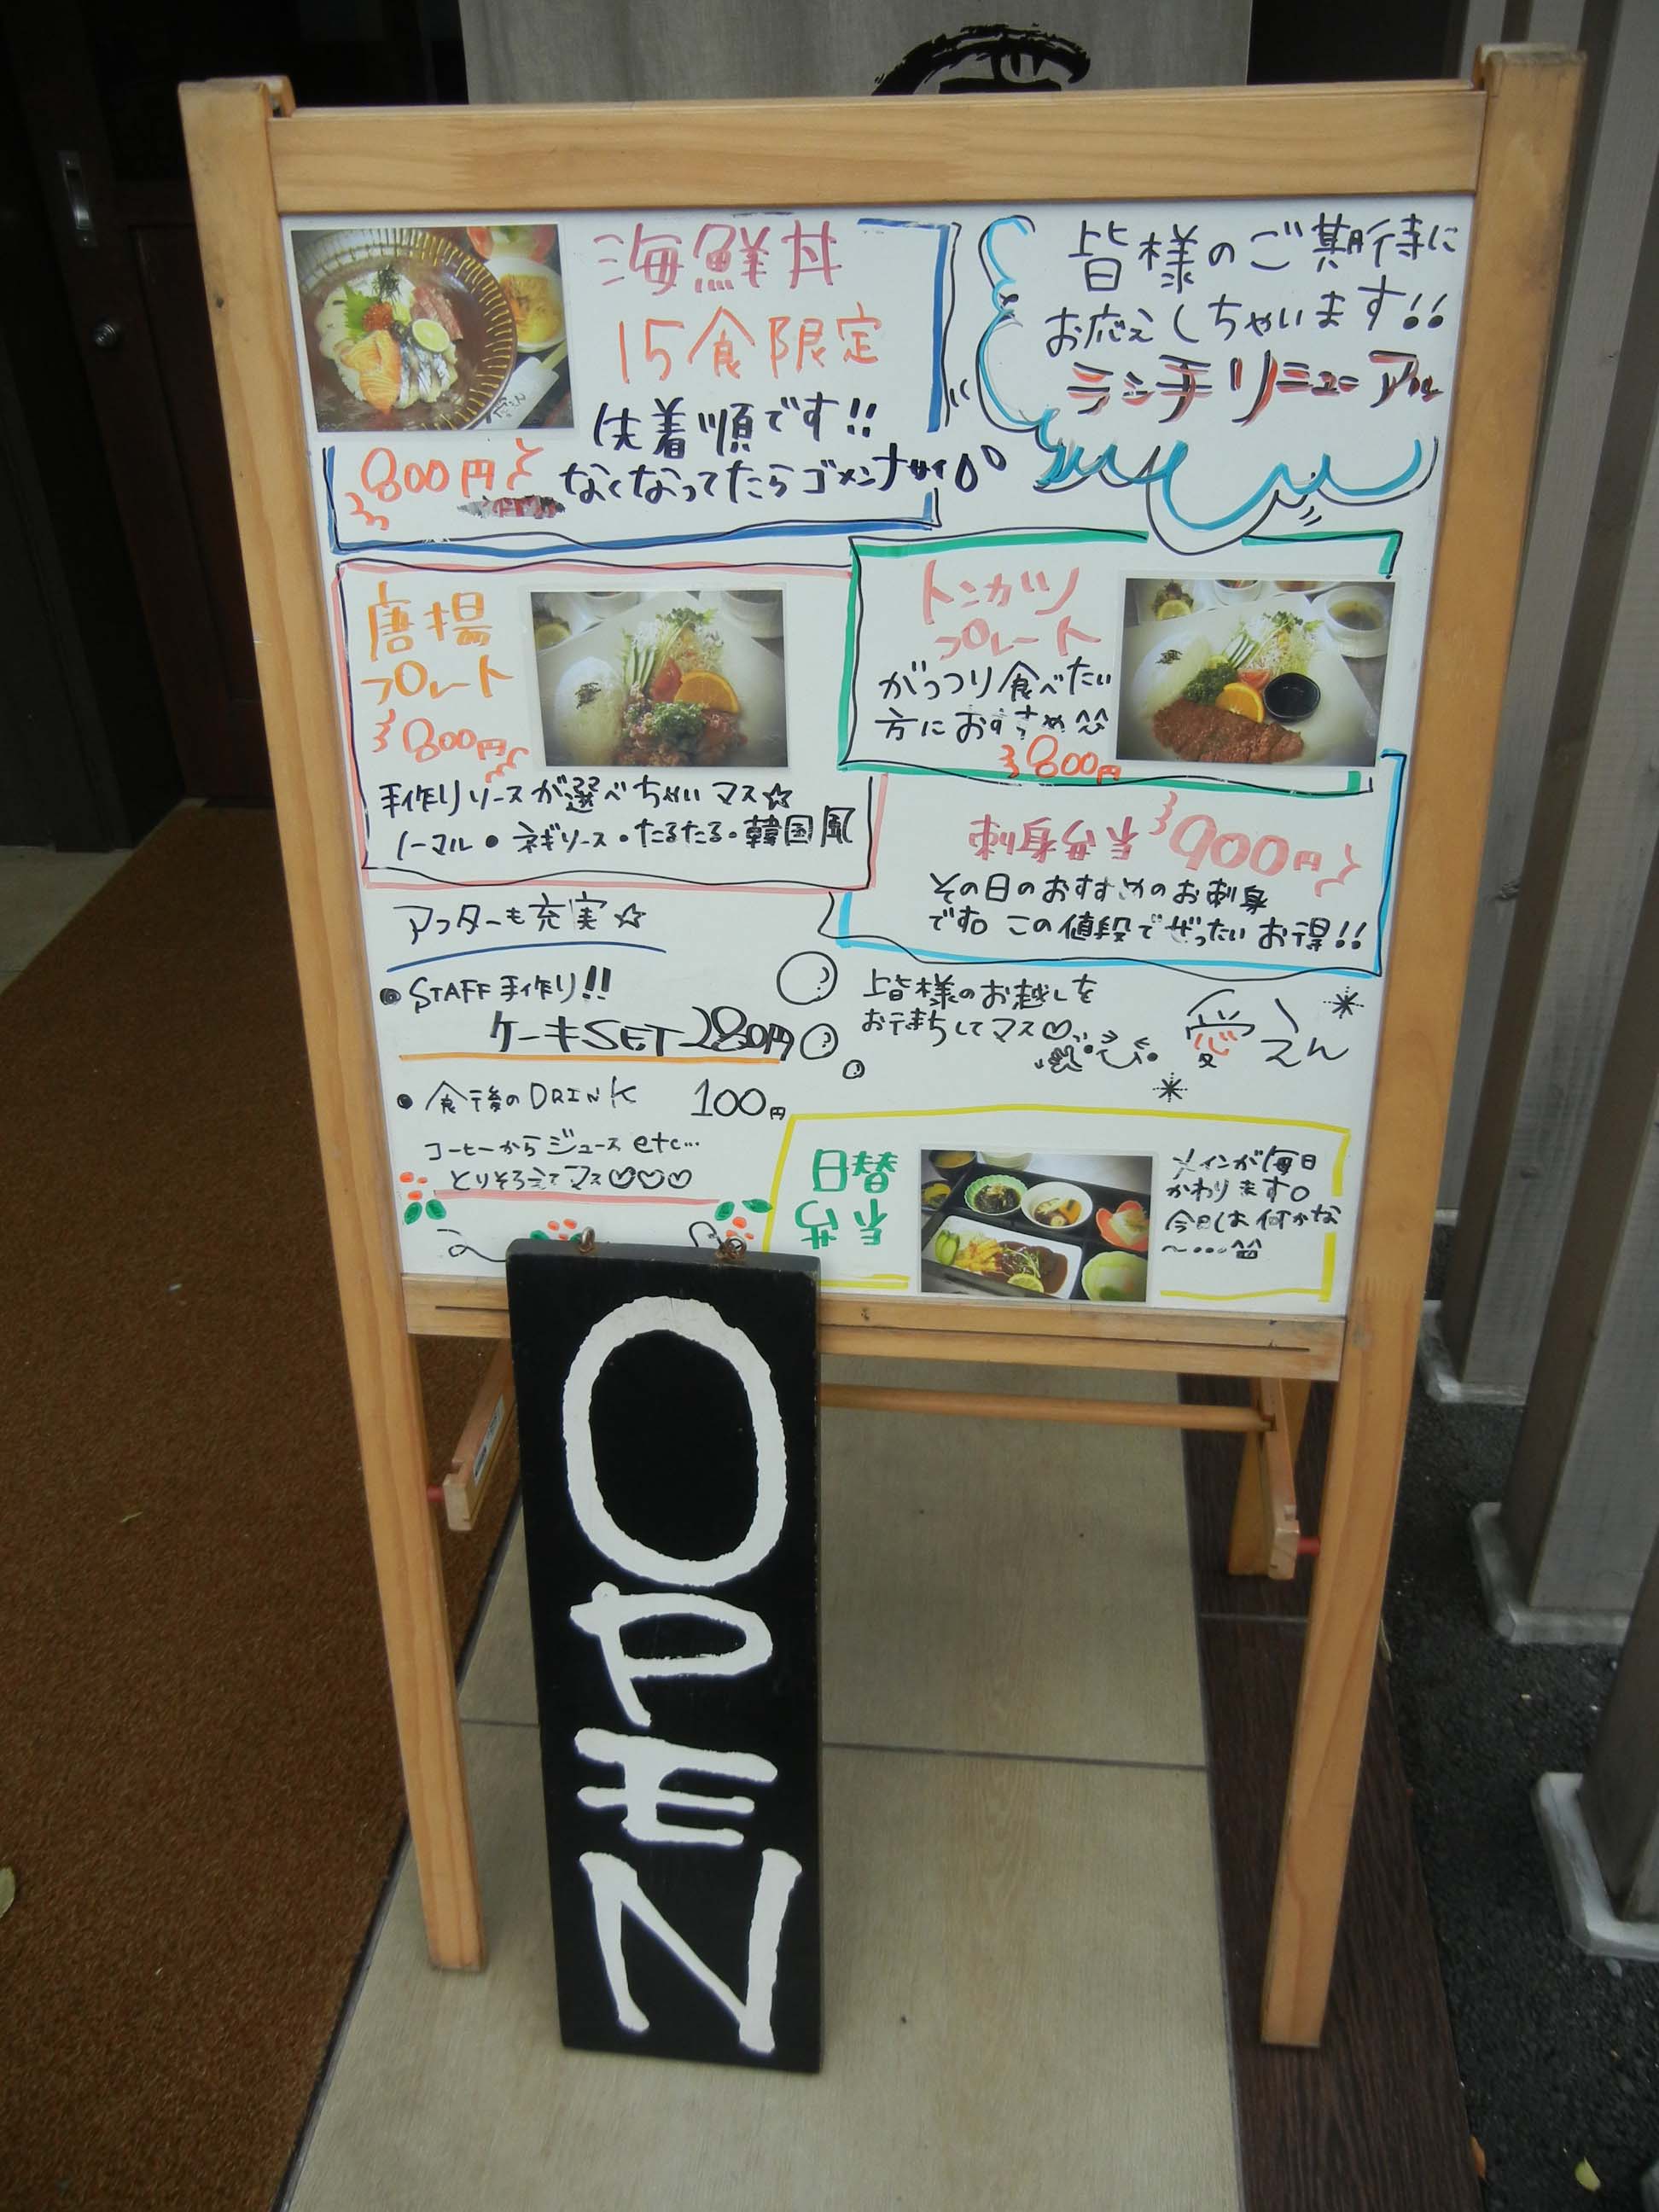 海鮮丼
15食限定
先着順です!!
800円
なくなってたらゴメンナサイ
皆様のご期待に
お応えしちゃいます!!
ランチリニューアル
唐揚
プレート
800円
手作りソースが選べちゃいマス☆
ノーマル・ネギソース・たるたる・韓国風
トンカツ
プレート
がっつり食べたい
方におすすめ^^
800円
刺身弁当 900円
その日のおすすめのお刺身
です。この値段でぜったいお得!!
アフターも充実☆
● STAFF手作り!!
ケーキSET 280円
● 食後のDRINK 100円
コーヒーからジュース etc…
とりそろえてマス♡♡♡
皆様のお越しを
お待ちしてマス♡
愛 えん
日替
弁当
メインが毎日
かわります。
今日は何かな
〜…^^
OPEN